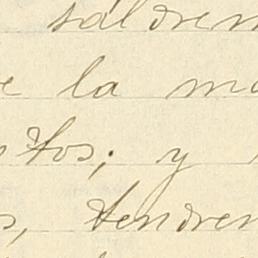 saldrem
e la ma
stos; y
s, tendrem